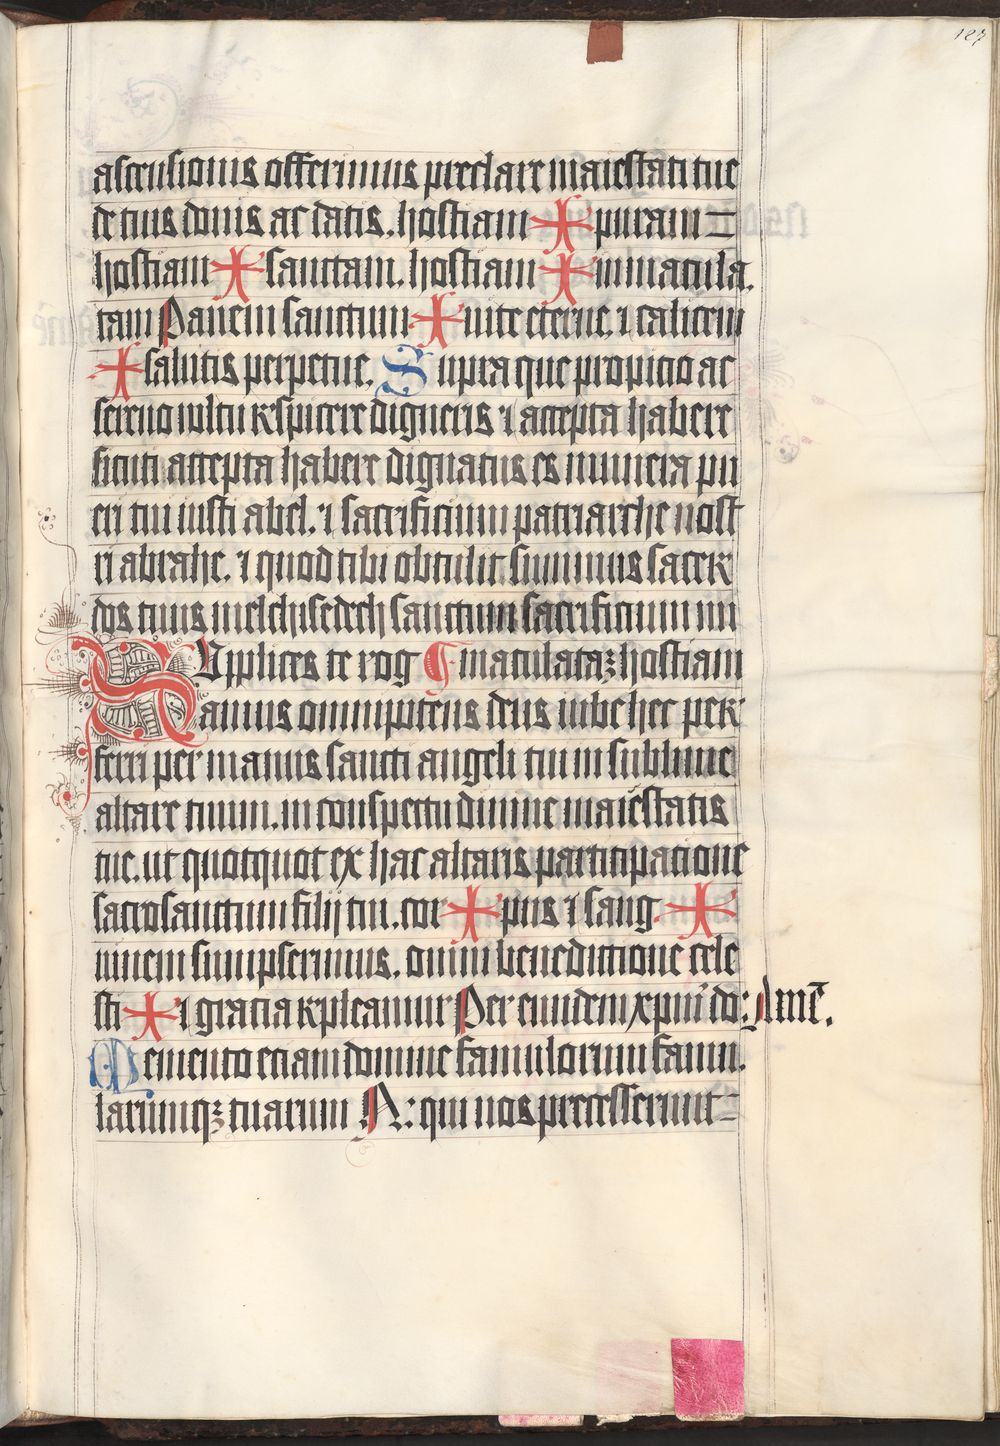 127
ascensionis offerimus preclare maiestati tue
de tuis donis ac datis. hostiam ✠ puram =
hostiam ✠ sanctam. hostiam ✠ inmacula.
tam Panem sanctum ✠ uite eterne. ⁊ calicem
✠ salutis perpetue. Supra que propicio ac
sereno uultu respicere digneris ⁊ accepta habere
sicuti accepta habere dignatus es munera pu
eri tui iusti abel. ⁊ sacrificium patriarche nost
ri abrahe. ⁊ quod tibi obtulit summus sacer
dos tuus melchisedech sanctum sacrificium im
Supplices te rog ¶ maculataꝫ hostiam
amus omnipotens deus iube hec per
ferri per manus sancti angeli tui in sublime
altare tuum. in conspectu diuine maiestatis
tue. ut quotquot ex hac altaris participatione
sacrosanctum filij tui. cor ✠ pus ⁊ sang. ✠
uinem sumpserimus. omni benedictione cele
sti ✠ ⁊ gratia repleamur Per eundem xpm̄ do: Amē.
Memento etiam domine famulorum famu.
larumqꝫ tuarum N: qui nos precesserunt =